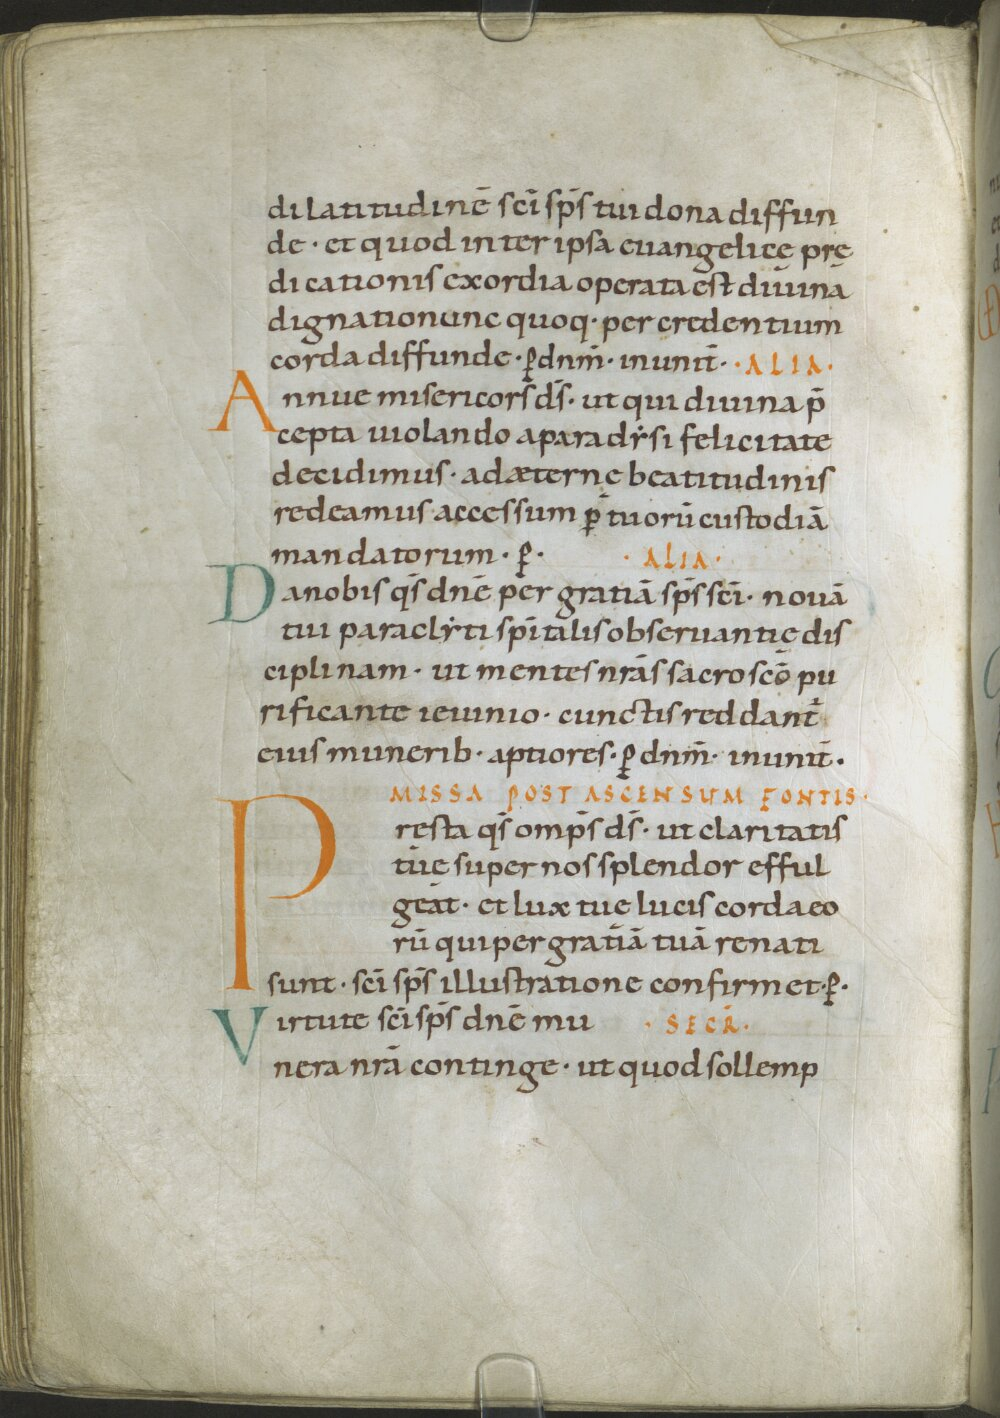 di latitudinē sc̄i sp̄s tui dona diffun
de · et quod inter ipsa euangelicę prę
dicationis exordia operata est diuina
dignatio nunc quoq· per credentium
corda diffunde · ꝑ dnm̄ · in unit̄ · · ALIA ·
Annue misericors d̄s · ut qui diuina p̄
cepta uiolando a paradẏsi felicitate
decidimus · ad æternę beatitudinis
redeamus accessum ꝑ tuorū custodiā
mandatorum · ꝑ · · ALIA ·
Da nobis qs̄ dn̄e per gratiā sp̄s sc̄i · nouā
tui paraclẏti sp̄italis obseruantię dis
ciplinam · ut mentes nr̄as sacro sc̄ō pu
rificante ieiunio · cunctis reddant̄
eius munerib · aptiores · ꝑ dnm̄ · in unit̄ ·
MISSA POST ASCENSUM FONTIS ·
Presta qs̄ omp̄s d̄s · ut claritatis
tuę super nos splendor efful
geat · et lux tuę lucis corda eo
rū qui per gratiā tuā renati
sunt · sc̄i sp̄s illustratione confirmet · ꝑ ·
Virtute sc̄i sp̄s dn̄e mu · SECR̄ ·
nera nr̄a continge · ut quod sollemp